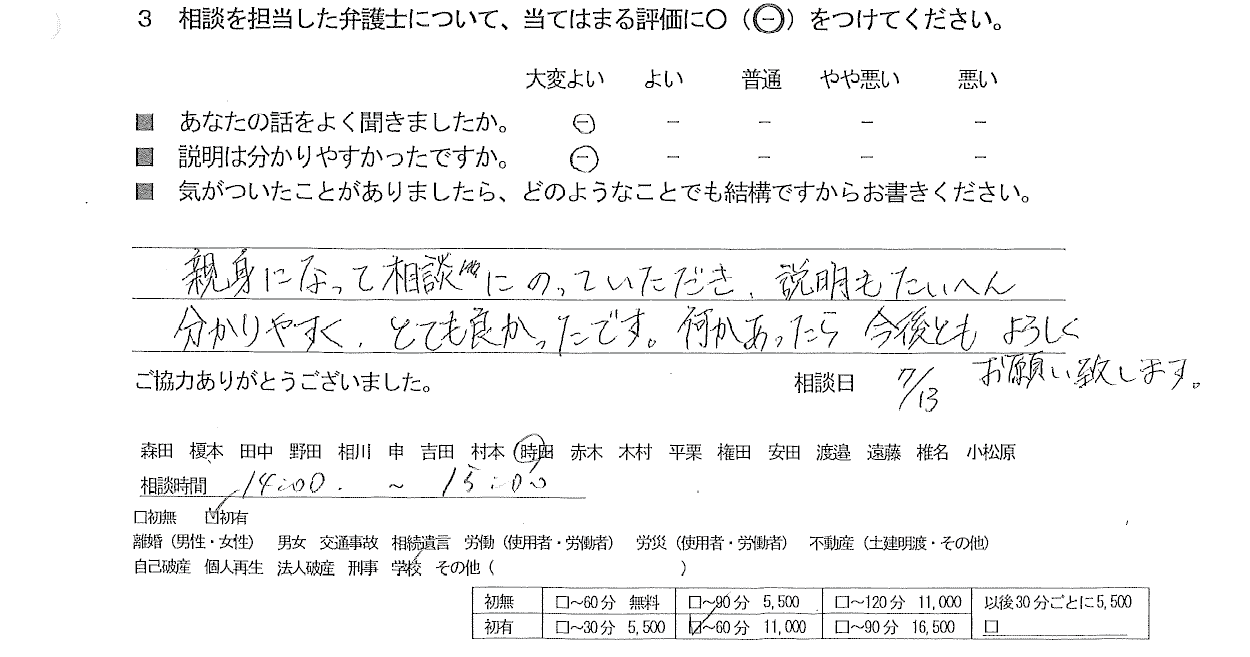 3 相談を担当した弁護士について、当てはまる評価に○（㊀）をつけてください。
大変よい よい 普通 やや悪い 悪い
■ あなたの話をよく聞きましたか。 － － － － －
■ 説明は分かりやすかったですか。 － － － － －
■ 気がついたことがありましたら、どのようなことでも結構ですからお書きください。
親身になって相談にのっていただき、説明もたいへん
分かりやすく、とても良かったです。何かあったら 今後とも よろしく
お願い致します。
ご協力ありがとうございました。 相談日 7/13
森田 榎本 田中 野田 相川 申 吉田 村本 時田 赤木 木村 平栗 権田 安田 渡邉 遠藤 椎名 小松原
相談時間 14:00. ～ 15:00
□初無 ☑初有
離婚（男性・女性） 男女 交通事故 相続遺言 労働（使用者・労働者） 労災（使用者・労働者） 不動産（土建明渡・その他）
自己破産 個人再生 法人破産 刑事 学校 その他（ ）
初無 □～60分 無料 □～90分 5,500 □～120分 11,000 以後30分ごとに5,500
初有 □～30分 5,500 ☑～60分 11,000 □～90分 16,500 □